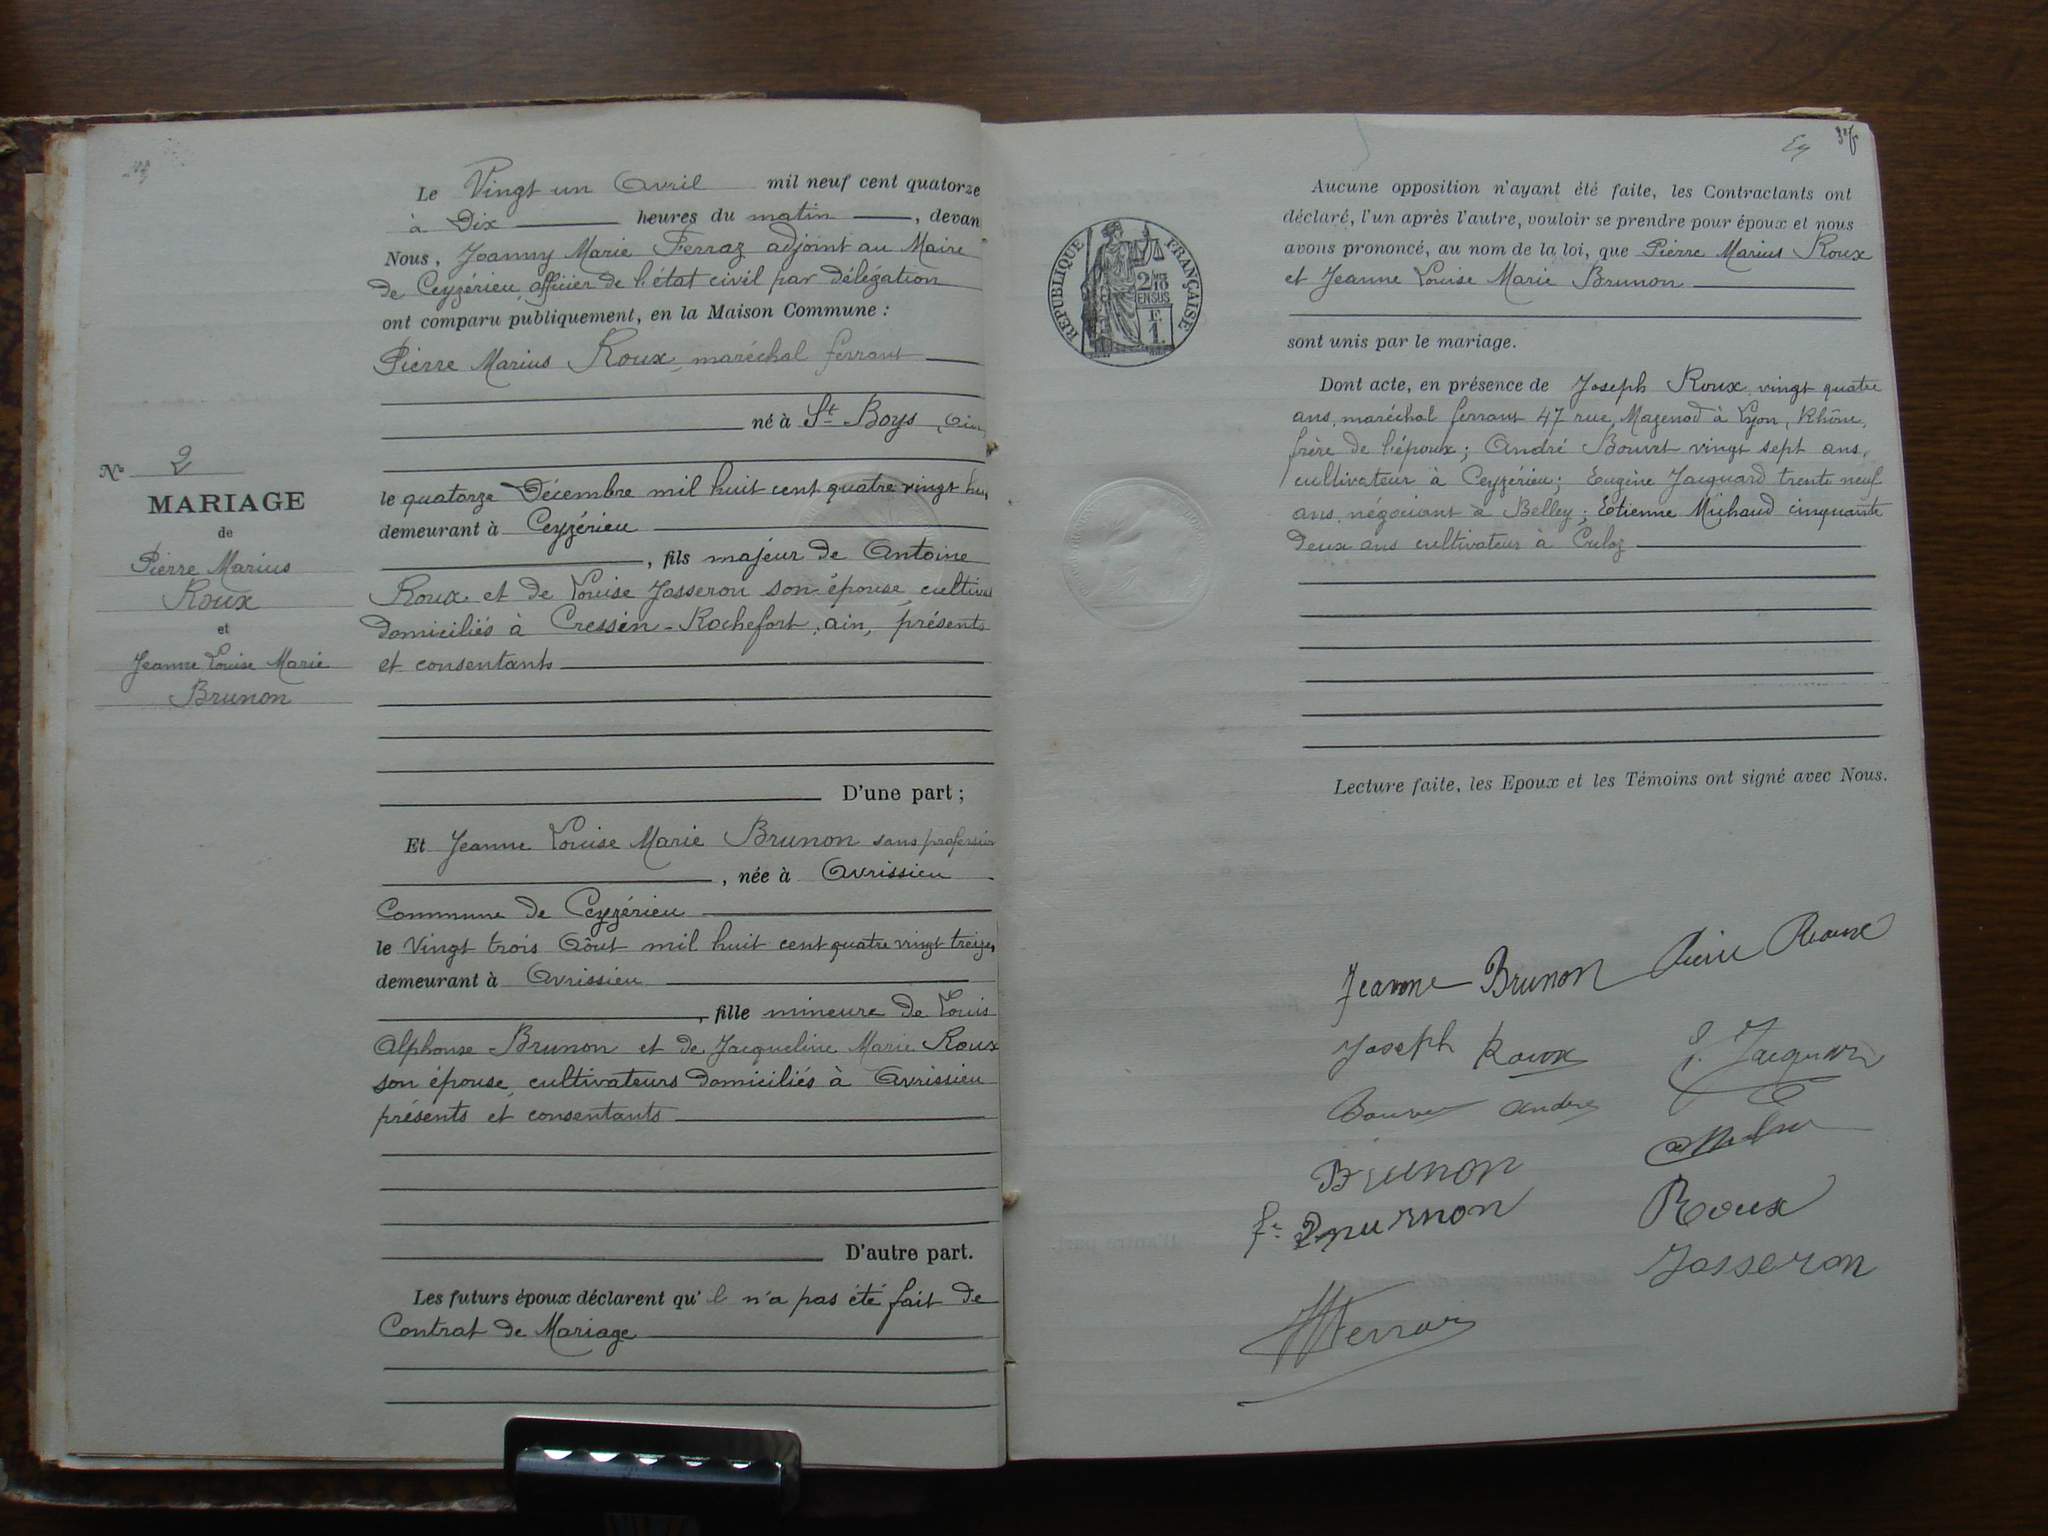 Le Vingt un Avril mil neuf cent quatorze
à Dix heures du matin, devan
Nous, Joanny Marie Ferraz adjoint au Maire
de Ceyzérieu, officier de l'état civil par délégation
ont comparu publiquement, en la Maison Commune :
Pierre Marius Roux, maréchal ferrant
né à St Boys, Ain,
le quatorze Décembre mil huit cent quatre vingt hui
demeurant à Ceyzérieu
, fils majeur de Antoine
Roux et de Louise Josseron son épouse, cultiva
domiciliés à Cressin-Rochefort, ain, présents
et consentants
D'une part ;
Et Jeanne Louise Marie Brunon sans profession
, née à Avrissieu
Commune de Ceyzérieu
le Vingt trois Août mil huit cent quatre vingt treize,
demeurant à Avrissieu
, fille mineure de Louis
Alphonse Brunon et de Jacqueline Marie Roux
son épouse, cultivateurs domiciliés à Avrissieu
présents et consentants
D'autre part.
Les futurs époux déclarent qu'il n'a pas été fait de
Contrat de Mariage
N° 2
MARIAGE
de
Pierre Marius
Roux
et
Jeanne Louise Marie
Brunon
RÉPUBLIQUE FRANÇAISE
2/10
EN SUS
F.
1.
Aucune opposition n'ayant été faite, les Contractants ont
déclaré, l'un après l'autre, vouloir se prendre pour époux et nous
avons prononcé, au nom de la loi, que Pierre Marius Roux
et Jeanne Louise Marie Brunon
sont unis par le mariage.
Dont acte, en présence de Joseph Roux, vingt quatre
ans, maréchal ferrant 47 rue Mazenod à Lyon, Rhône,
frère de l'époux ; André Bouvet vingt sept ans,
cultivateur à Ceyzérieu ; Eugène Jacquard trente neuf
ans, négociant à Belley ; Etienne Michaud cinquante
deux ans cultivateur à Culoz
Lecture faite, les Epoux et les Témoins ont signé avec Nous.
Jeanne Brunon Pierre Roux
Joseph Roux
Bouvet André
Brunon
Roux
Josseron